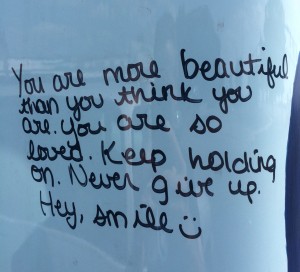 You are more beautiful
than you think you
are. you are so
loved. Keep holding
on. Never give up.
Hey, smile :)